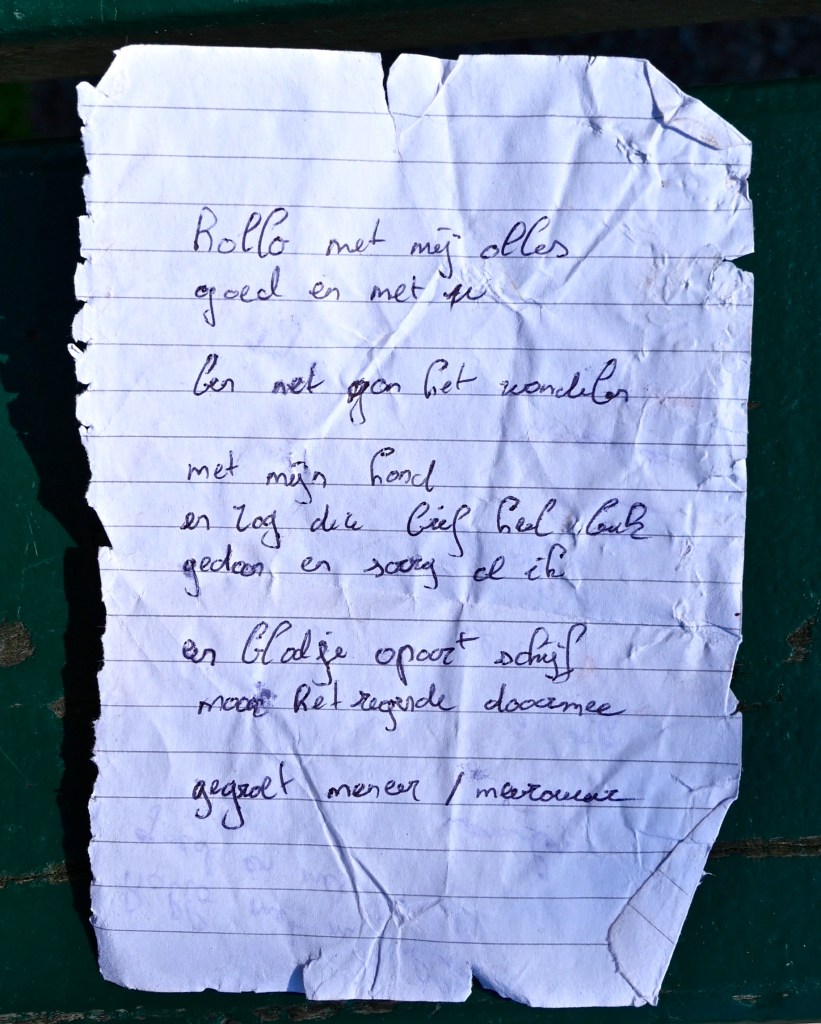 Hollo met mij alles
goed en met u
ben met aan het wandelen
met mijn hond
en zag die brief heel leuk
gedaan en sorry al ik
en bladje apart schijf
maar het regende daarmee
gegroet meneer / meurouw